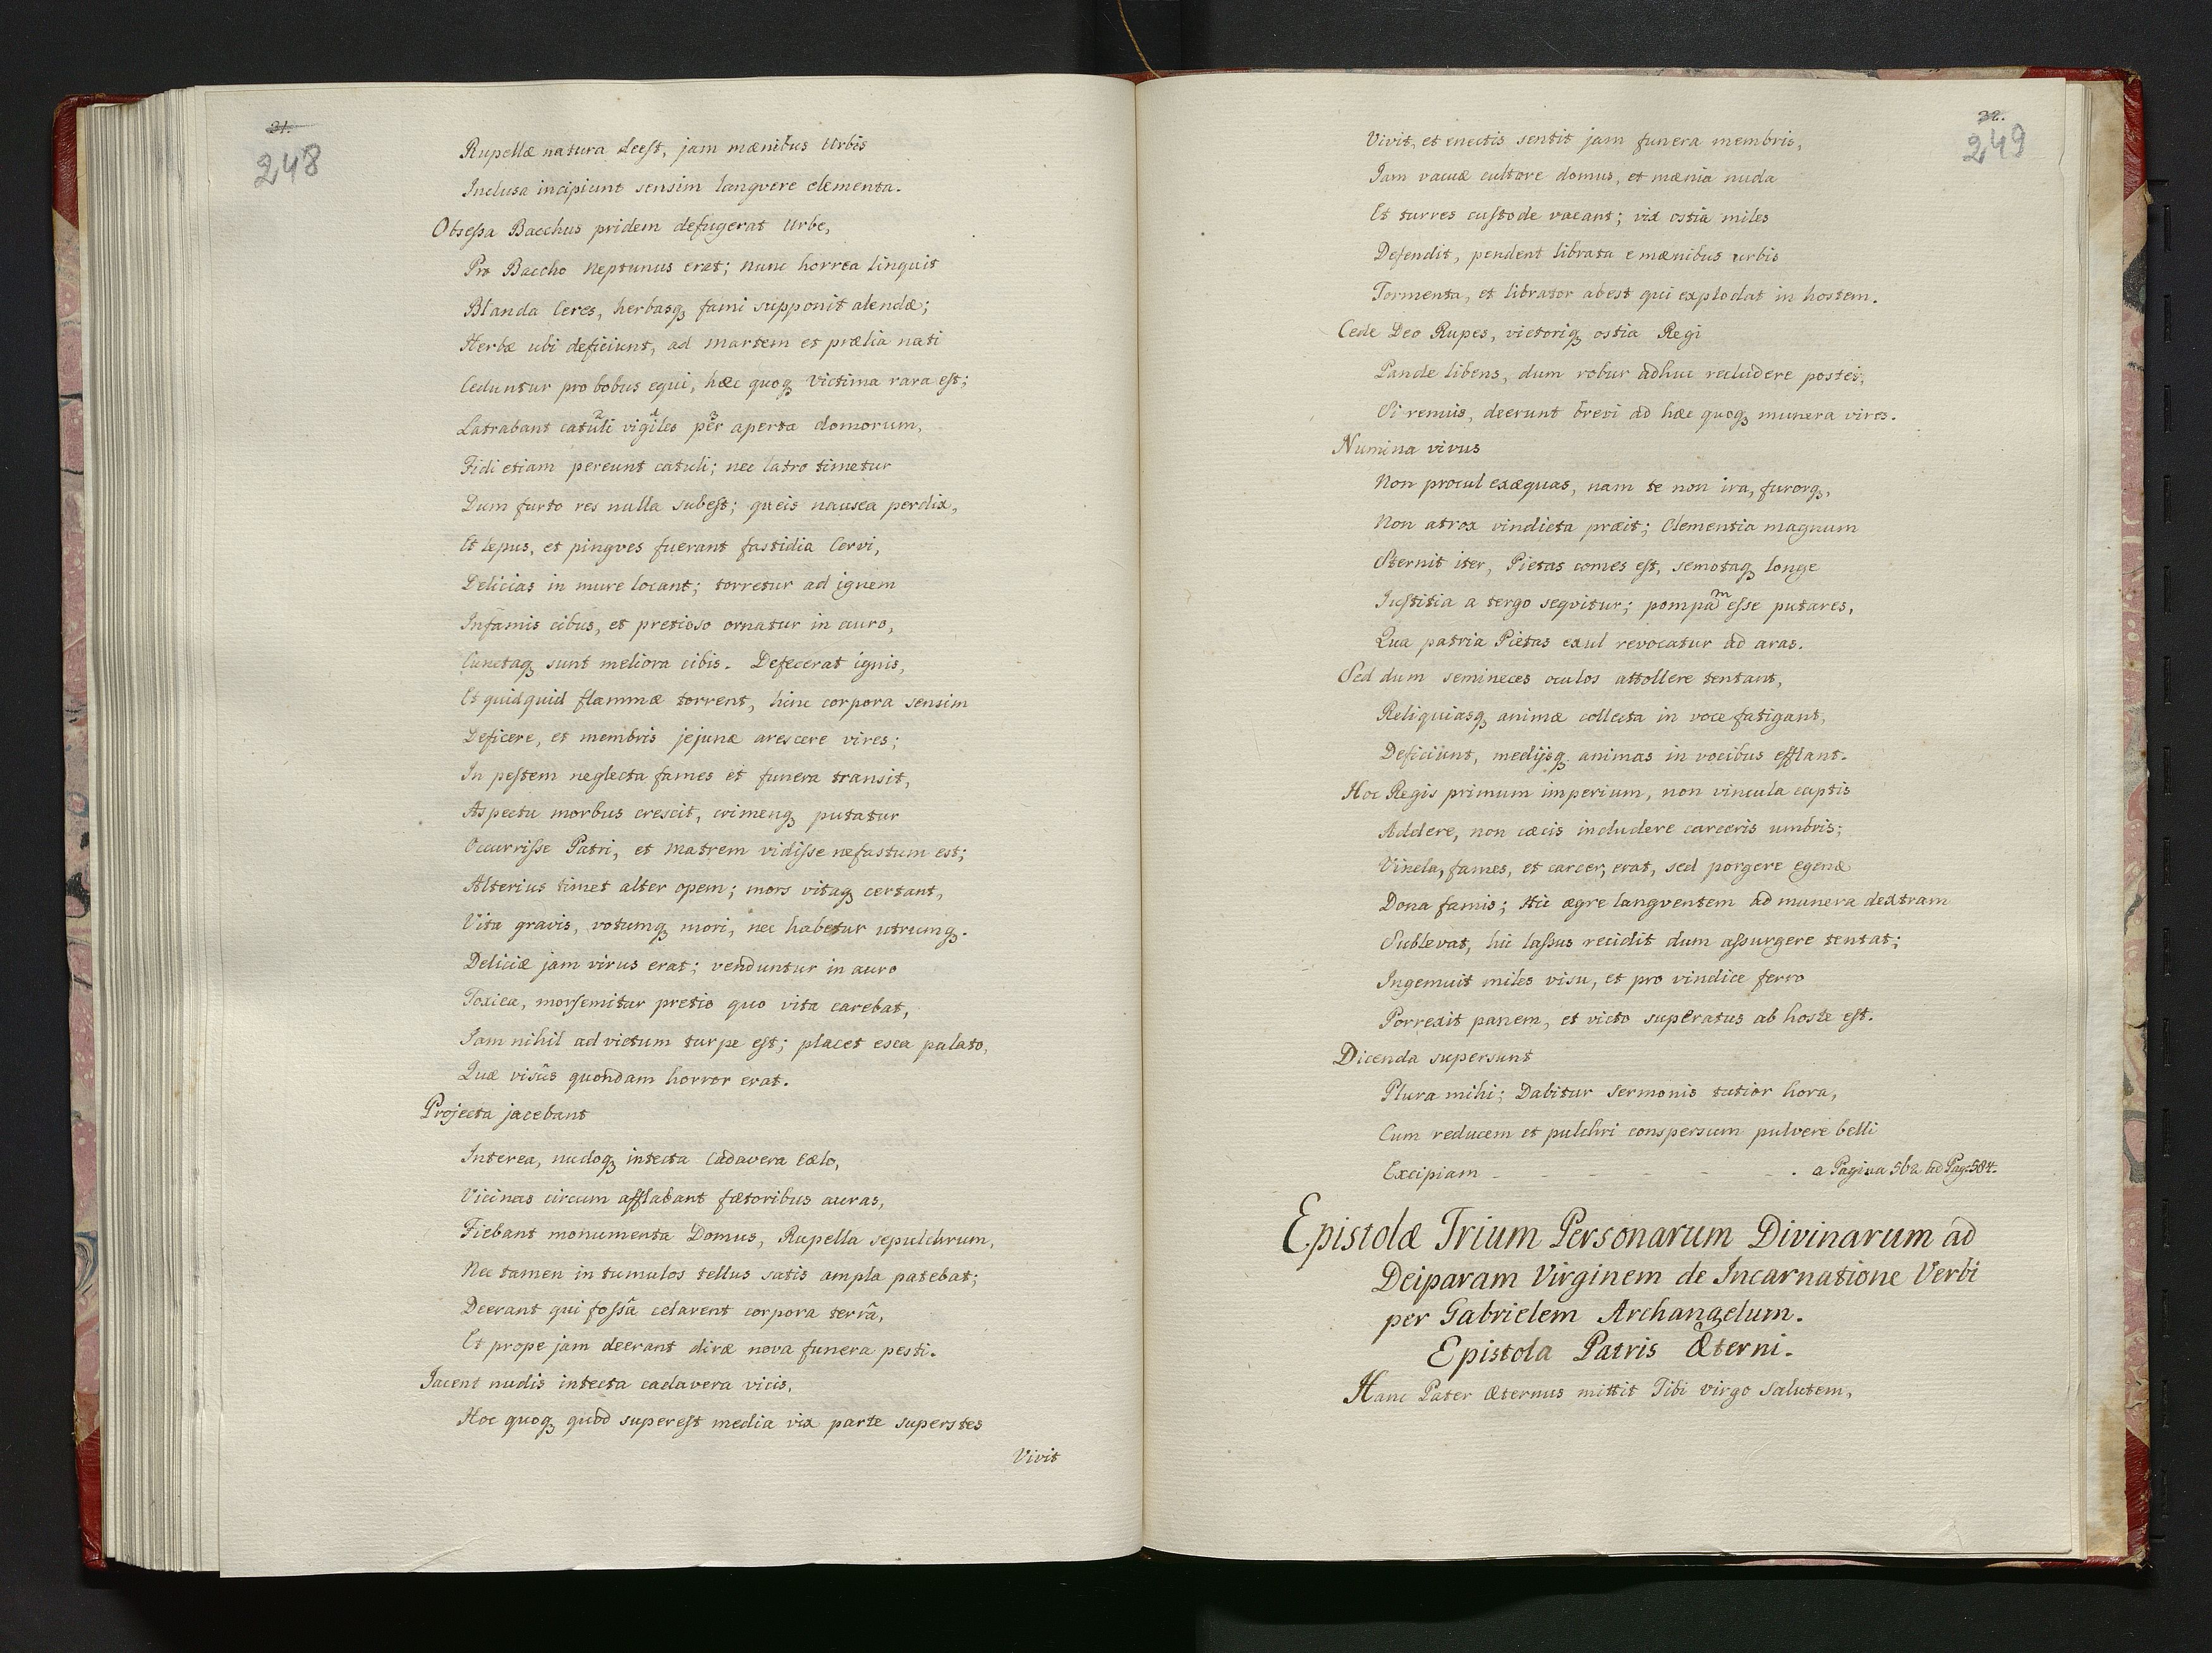 31.
248
Rupellæ natura deest, jam mænibus Urbis
Inclusa incipiunt sensim langvere elementa.
Obsessa Bacchus pridem defugerat Urbe,
Pro Baccho Neptunus erat; nunc horrea linquit
Blanda Ceres, herbasq, fami supponit alendæ;
Herbæ ubi deficiunt, ad Martem et prælia nati
Ceduntur pro bobus equi, hæc quoq, Victima rara est;
Latrabant catuli vigiles per aperta domorum,
Fidi etiam pereunt catuli; nec latro timetur
Dum furto res nulla subest; queis nausea perdix,
Et lepus, et pingves fuerant fastidia Cervi,
Delicias in mure locant; torretur ad ignem
Infamis cibus, et pretioso ornatur in auro,
Cunctaq, sunt meliora cibis. Defecerat ignis,
Et quidquid flammæ torrent, hinc corpora sensim
Deficere, et membris jejunæ arescere vires;
In pestem neglecta fames et funera transit,
Aspectu morbus crescit, crimenq, putatur
Occurrisse Patri, et Matrem vidisse nefastum est;
Alterius timet alter opem; mors vitaq, certant,
Vita gravis, votumq, mori, nec habetur utrumq.
Deliciæ jam virus erat; venduntur in auro
Toxica, mors emitur pretio quo vita carebat,
Iam nihil ad victum turpe est; placet esca palato,
Quæ visûs quondam horror erat.
Projecta jacebant
Interea, nudoq, intecta Cadavera Cælo,
Vicinas circum afflabant fætoribus auras,
Fiebant monumenta Domus, Rupella sepulchrum,
Nec tamen in tumulos tellus satis ampla patebat;
Deerant qui fossâ celarent corpora terrâ,
Et prope jam deerant diræ nova funera pesti.
Iacent nudis intecta cadavera vicis,
Hoc quoq, quod superest media vix parte superstes
Vivit
32.
249
Vivit, et enectis sentit jam funera membris,
Iam vacuæ cultore domus, et mænia nuda
Et turres custode vacant; vix ostia miles
Defendit, pendent librata e mænibus urbis
Tormenta, et librator abest qui explodat in hostem.
Cede Deo Rupes, victoriq, ostia Regi
Pande libens, dum robur adhuc recludere postes,
Si renuis, deerunt brevi ad hæc quoq, munera vires.
Numina vivus
Non procul exæquas, nam te non ira, furorq,
Non atrox vindicta præit; Clementia magnum
Sternit iter, Pietas comes est, semotaq, longe
Iustitia a tergo seqvitur; pompam esse putares,
Qua patria Pietas exul revocatur ad aras.
Sed dum semineces oculos attollere tentant,
Reliquiasq, animæ collecta in voce fatigant,
Deficiunt, medijsq, animas in vocibus efflant.
Hoc Regis primum imperium, non vincula captis
Addere, non cæcis includere carceris umbris;
Vincla, fames, et carcer, erat, sed porgere egenæ
Dona famis; Hic ægre langventem ad munera dextram
Sublevat, hic lassus recidit dum assurgere tentat;
Ingemuit miles visu, et pro vindice ferro
Porrexit panem, et victo superatus ab hoste est.
Dicenda supersunt
Plura mihi; Dabitur Sermonis tutior hora,
Cum reducem et pulchri conspersum pulvere belli
Excipiam - - - - - - . a Pagina 562 ad Pag: 584.
Epistolæ Trium Personarum Divinarum ad
Deiparam Virginem de Incarnatione Verbi
per Gabrielem Archangelum.
Epistola Patris Æterni.
Hanc Pater Æternus mittit Tibi Virgo Salutem,